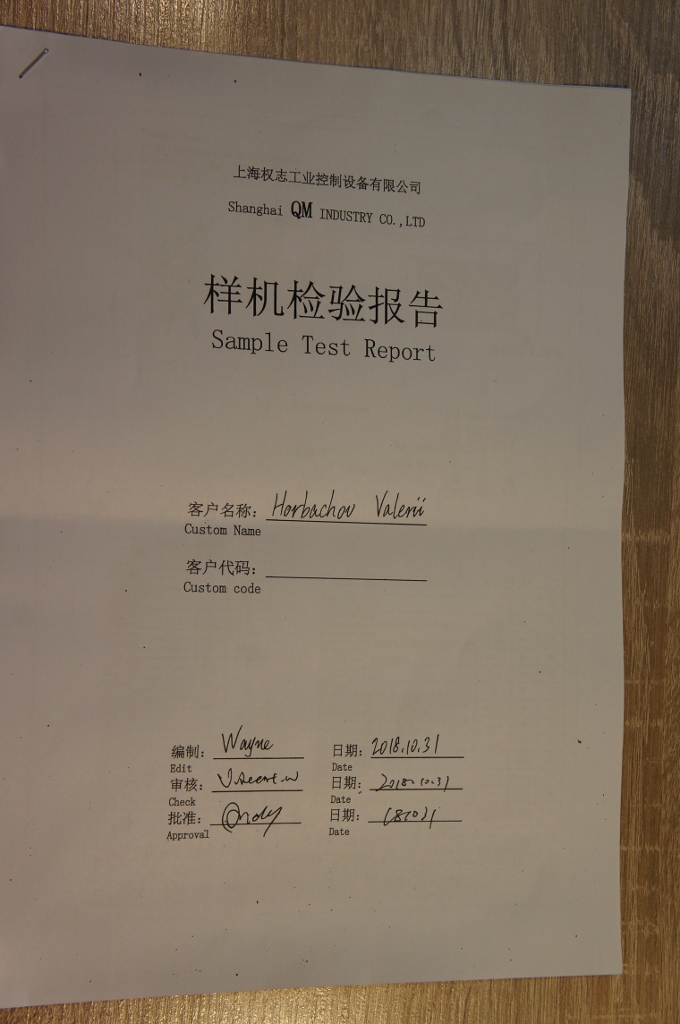 上海权志工业控制设备有限公司
Shanghai QM INDUSTRY CO.,LTD
样机检验报告
Sample Test Report
客户名称: Horbachov Valerii
Custom Name
客户代码:
Custom code
编制: Wayne 日期: 2018.10.31
Edit Date
审核: 日期: 2018.10.31
Check Date
批准: Andy 日期:
Approval Date